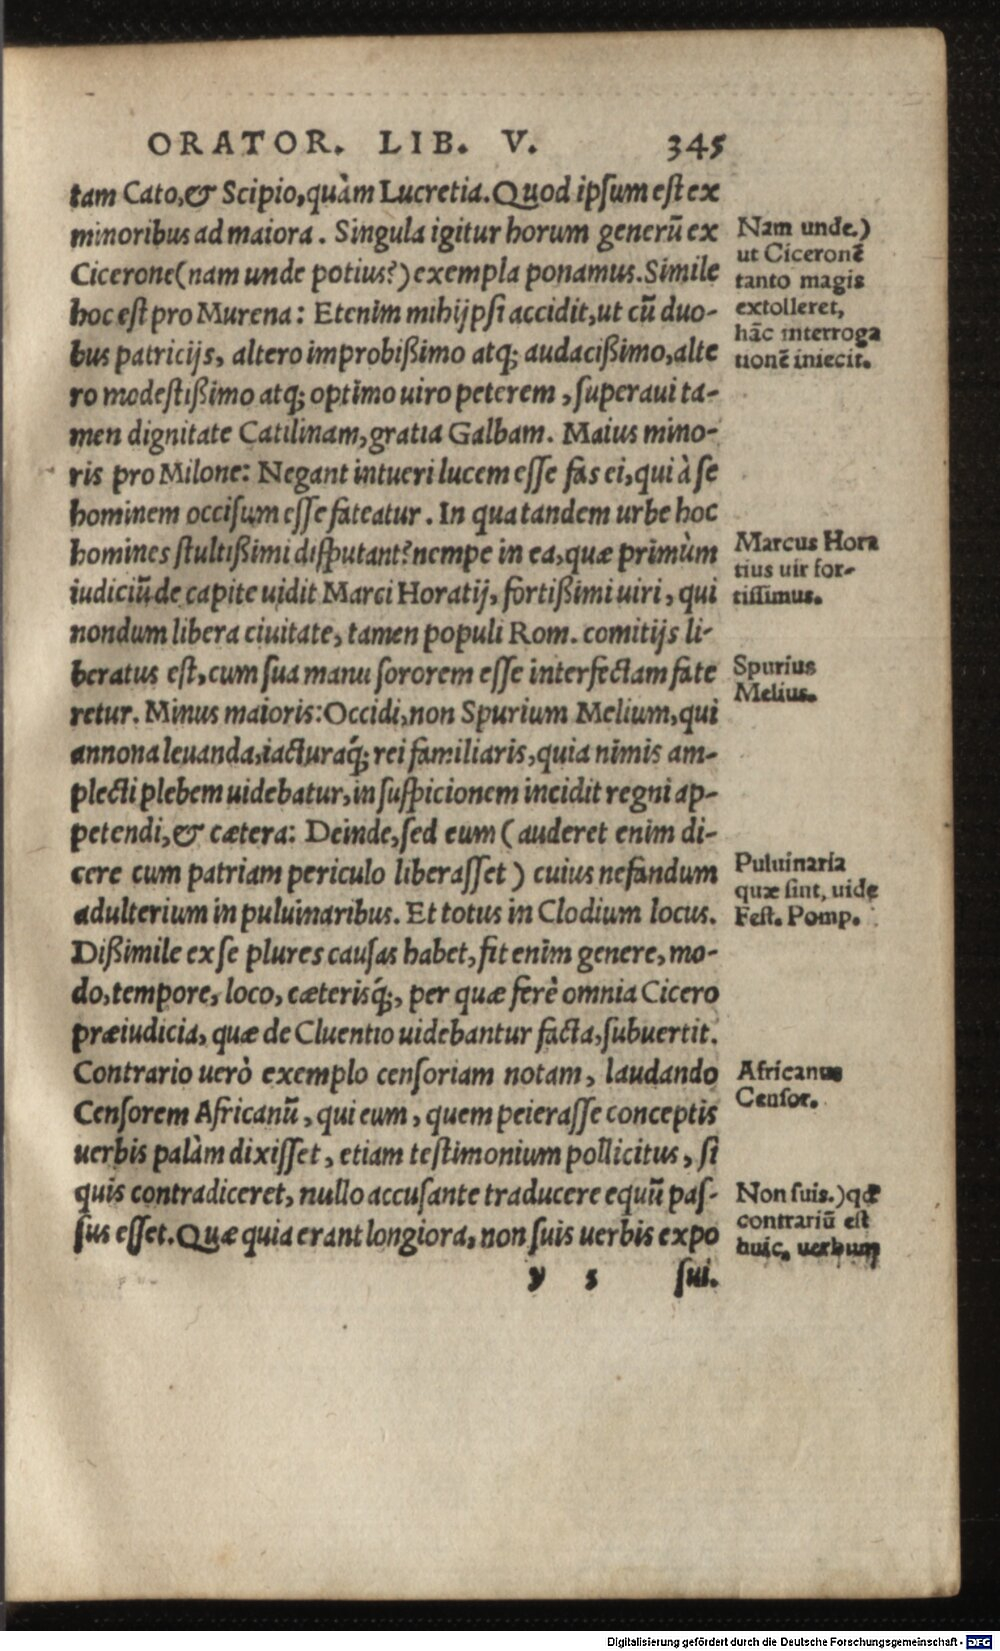 ORATOR. LIB. V. 345
tam Cato, & Scipio, quàm Lucretia. Quod ipsum est ex
minoribus ad maiora. Singula igitur horum generũ ex
Cicerone (nam unde potius?) exempla ponamus. Simile
hoc est pro Murena: Etenim mihi ipsi accidit, ut cũ duo-
bus patricijs, altero improbißimo atq; audacißimo, alte
ro modestißimo atq; optimo uiro peterem, superaui ta-
men dignitate Catilinam, gratia Galbam. Maius mino-
ris pro Milone: Negant intueri lucem esse fas ei, qui à se
hominem occisum esse fateatur. In qua tandem urbe hoc
homines stultißimi disputant? nempe in ea, quæ primùm
iudiciũ de capite uidit Marci Horatij, fortißimi uiri, qui
nondum libera ciuitate, tamen populi Rom. comitijs li-
beratus est, cum sua manu sororem esse interfectam fate
retur. Minus maioris: Occidi, non Spurium Melium, qui
annona leuanda, iacturaq́; rei familiaris, quia nimis am-
plecti plebem uidebatur, in suspicionem incidit regni ap-
petendi, & cætera: Deinde, sed eum (auderet enim di-
cere cum patriam periculo liberasset) cuius nefandum
adulterium in puluinaribus. Et totus in Clodium locus.
Dißimile ex se plures causas habet, fit enim genere, mo-
do, tempore, loco, cæterisq́;, per quæ ferè omnia Cicero
præiudicia, quæ de Cluentio uidebantur facta, subuertit.
Contrario uerò exemplo censoriam notam, laudando
Censorem Africanũ, qui eum, quem peierasse conceptis
uerbis palàm dixisset, etiam testimonium pollicitus, si
quis contradiceret, nullo accusante traducere equũ pas-
sus esset. Quæ quia erant longiora, non suis uerbis expo
y 5 sui.
Nam unde.)
ut Ciceronẽ
tanto magis
extolleret,
hãc interroga
tionẽ iniecit.
Marcus Hora
tius uir for-
tissimus.
Spurius
Melius.
Puluinaria
quæ sint, uide
Fest. Pomp.
Africanus
Censor.
Non suis.) qđ
contrariũ est
huic, uerbum
Digitalisierung gefördert durch die Deutsche Forschungsgemeinschaft - DFG